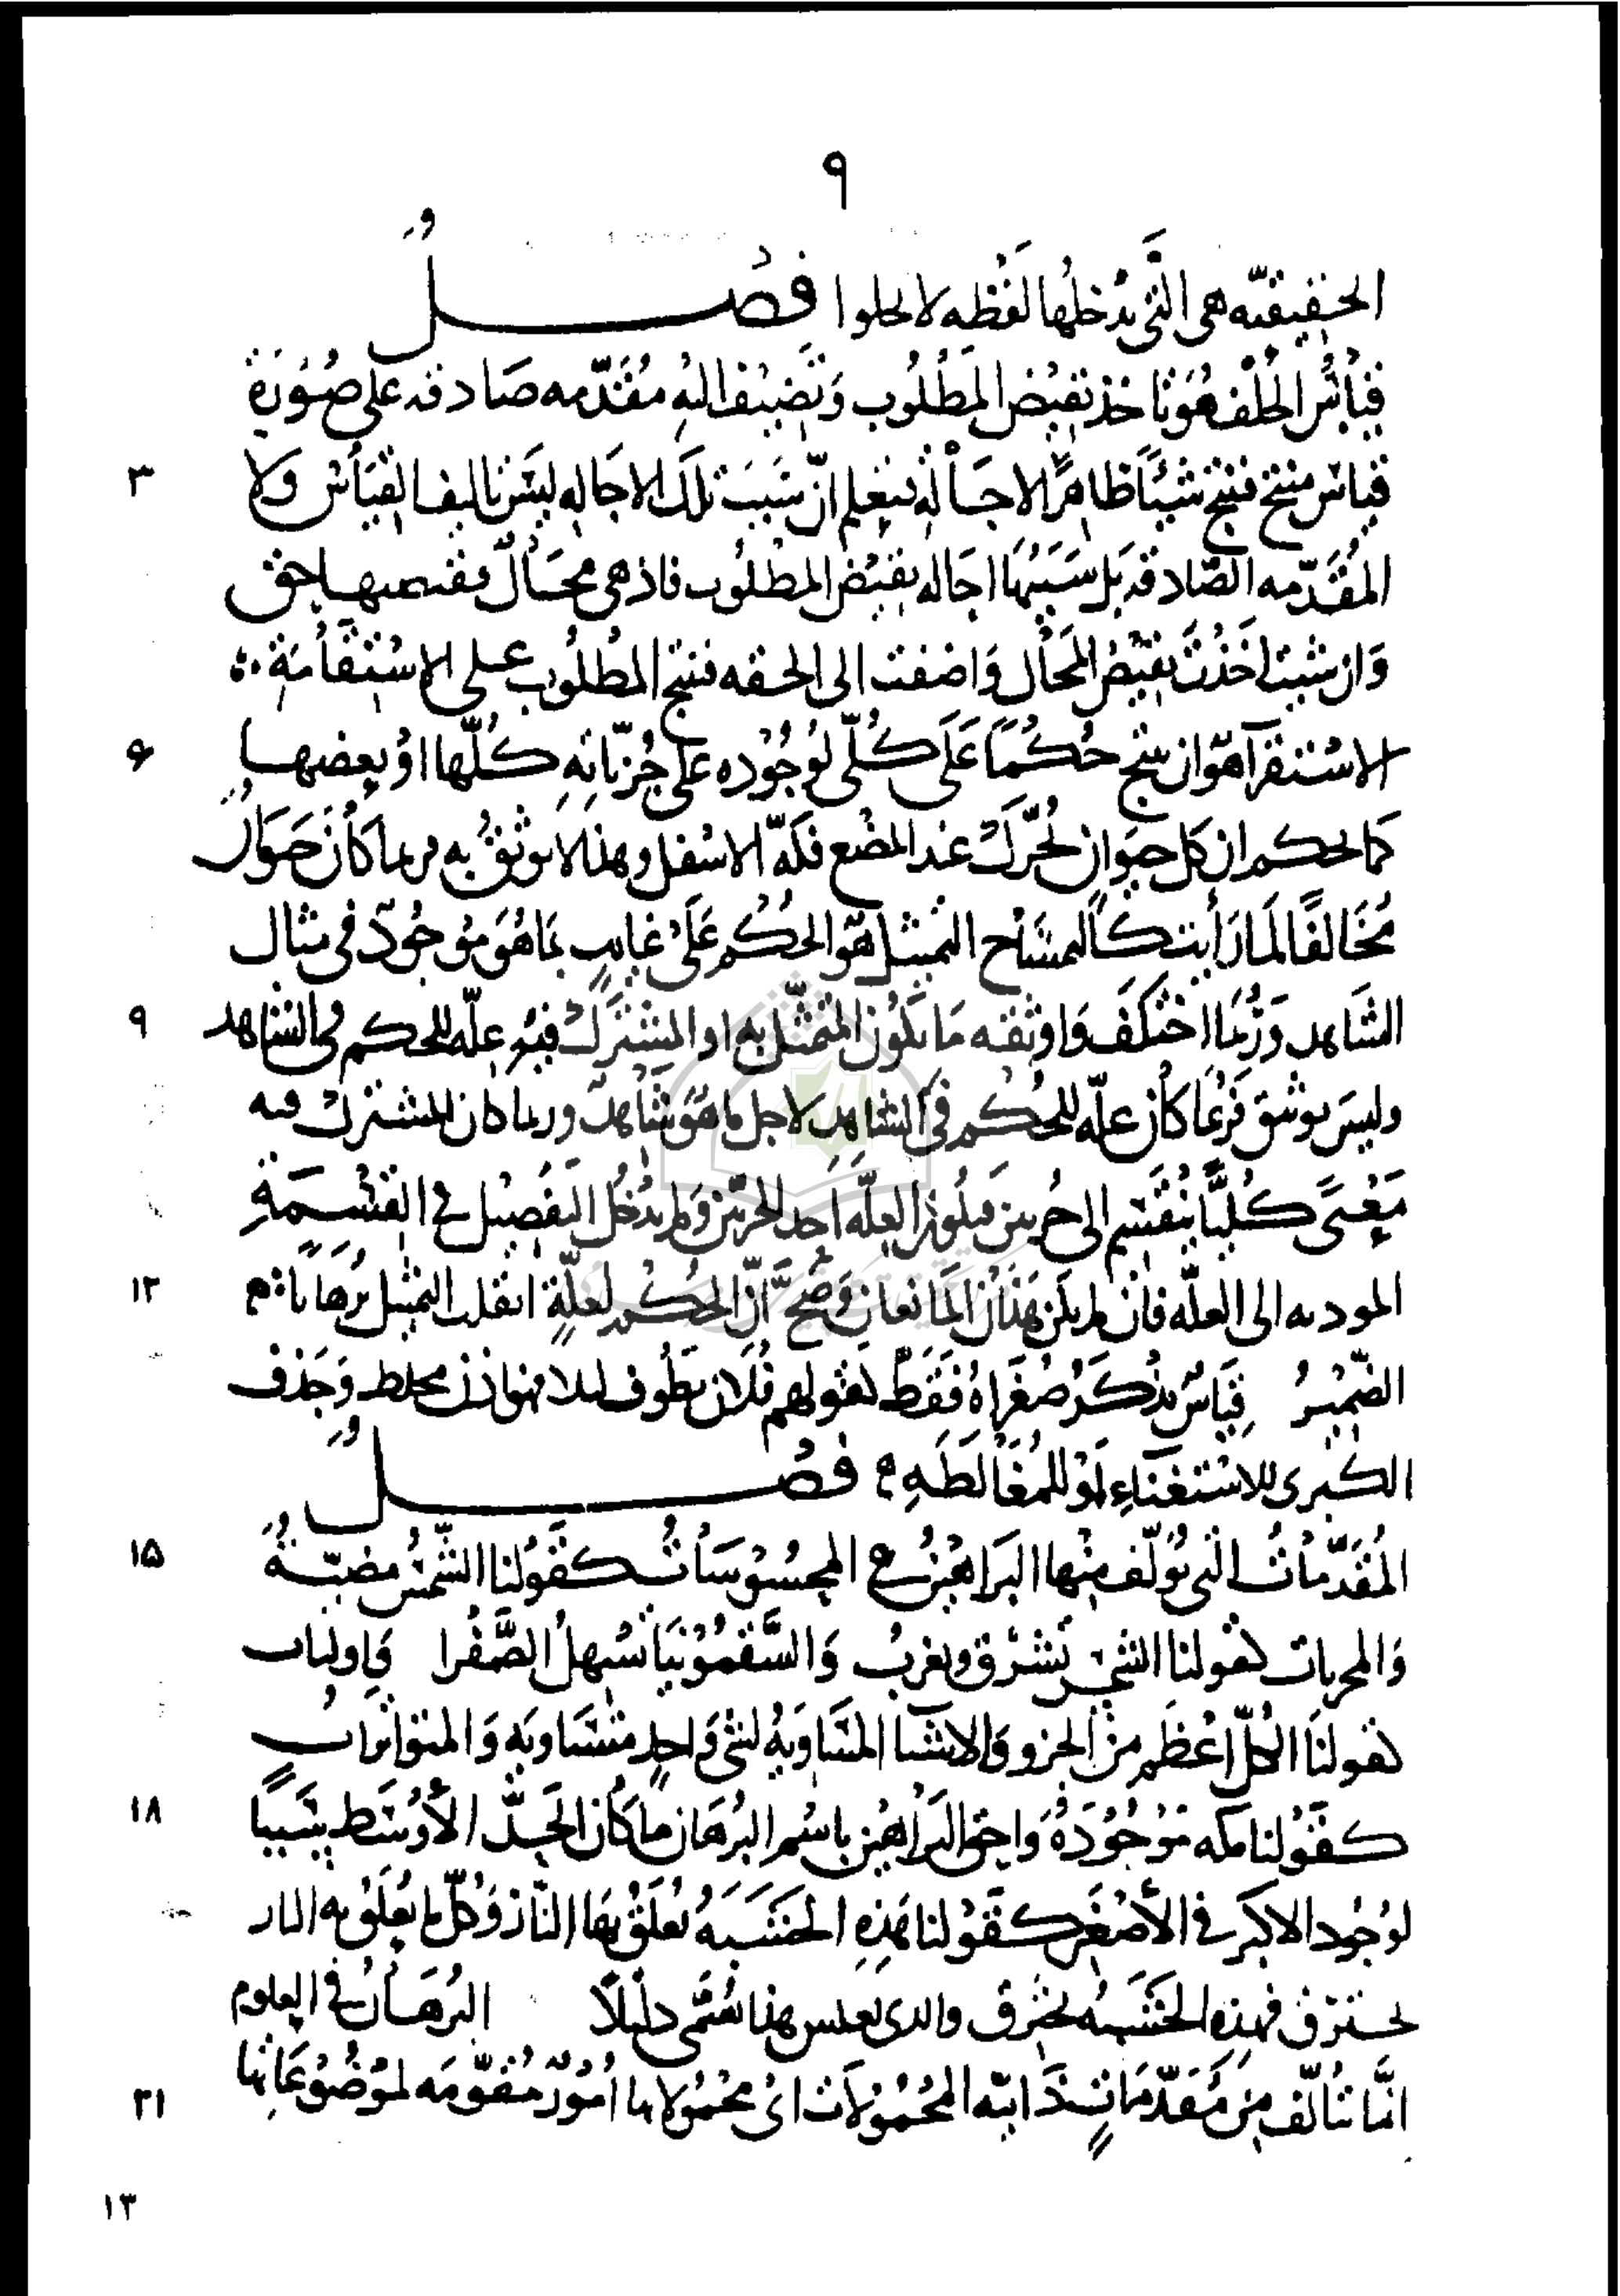 ٩
الحقيقيّه هى التى يدخلها لفظه لا يخلوا فصل
قياس الخلف هو تاخذ نقيض المطلوب وتضيف اليه مقدّمه صادقه على صورة
٣ قياس منتج فينتج شيئًا ظاهرًا لاحاله فيعلم انّ سبب تلك الاحاله ليس تاليف القياس ولا
المقدّمه الصّادقه بل سببها احاله نقيض المطلوب فاذ هى محال فنقيضها حق
وان شيت اخذت نقيض المحال واضفت الى الحقه فينتج المطلوب على الاستقامة
٦ الاستقرآ هو ان ينتج حكمًا على كلّى لوجوده على جزياته كلّها او بعضها
كما يحكم ان كل حيوان يحرّك عند المضغ فكّه الاسفل وهذا لا يوثق به فربما كان حيوان
مخالفًا لما رأيت كالتمساح التمثيل هو الحكم على غايب بما هو موجود فى مثال
٩ الشاهد وربّما اختلف واوثقه ما يكون المتمثّل به او المشترك فيه علّه للحكم فى الشاهد
وليس بوثيق فربّما كان علّه للحكم فى الشاهد لاجل ما هو شاهد وربما كان المشترك فيه
معنى كليًّا ينقسم الى جزيين فيكون العلّه احد الجزيّن ولم يدخل التفصيل فى القسمة
١٢ الموديه الى العلّه فان لم يكن هذان المانعان وصحّ انّ الحكم لعلّة انقلب التمثيل برهانا
الضّمير قياس يذكر صغراه فقط كقولهم فلان يطوف ليلا فهو اذن مخلط وحذف
الكبرى للاستغناء او للمغالطه فصل
١٥ المقدّمات التى تؤلّف منها البراهين المحسوسات كقولنا الشمس مضيّة
والمجربات كقولنا الشمس تشرق وتغرب والسّقمونيا تسهل الصّفرا والاوليات
كقولنا الكلّ اعظم من الجزو والاشيا المتساويه لشى واحد متساويه والمتواترات
١٨ كقولنا مكه موجوده واحق البراهين باسم البرهان ما كان الحدّ الأوسط سببًا
لوجود الاكبر فى الأصغر كقولنا هذه الخشبه تعلّق بها النّار وكلّ ما تعلّق به النار
يحترق فهذه الخشبه تحترق والذى بعكس هذا يسمّى دليلًا البرهان فى العلوم
٢١ انّما تتألّف من مقدّمات ذاتيّه المحمولات اى محمولاتها امور مقوّمه لموضوعاتها
١٣